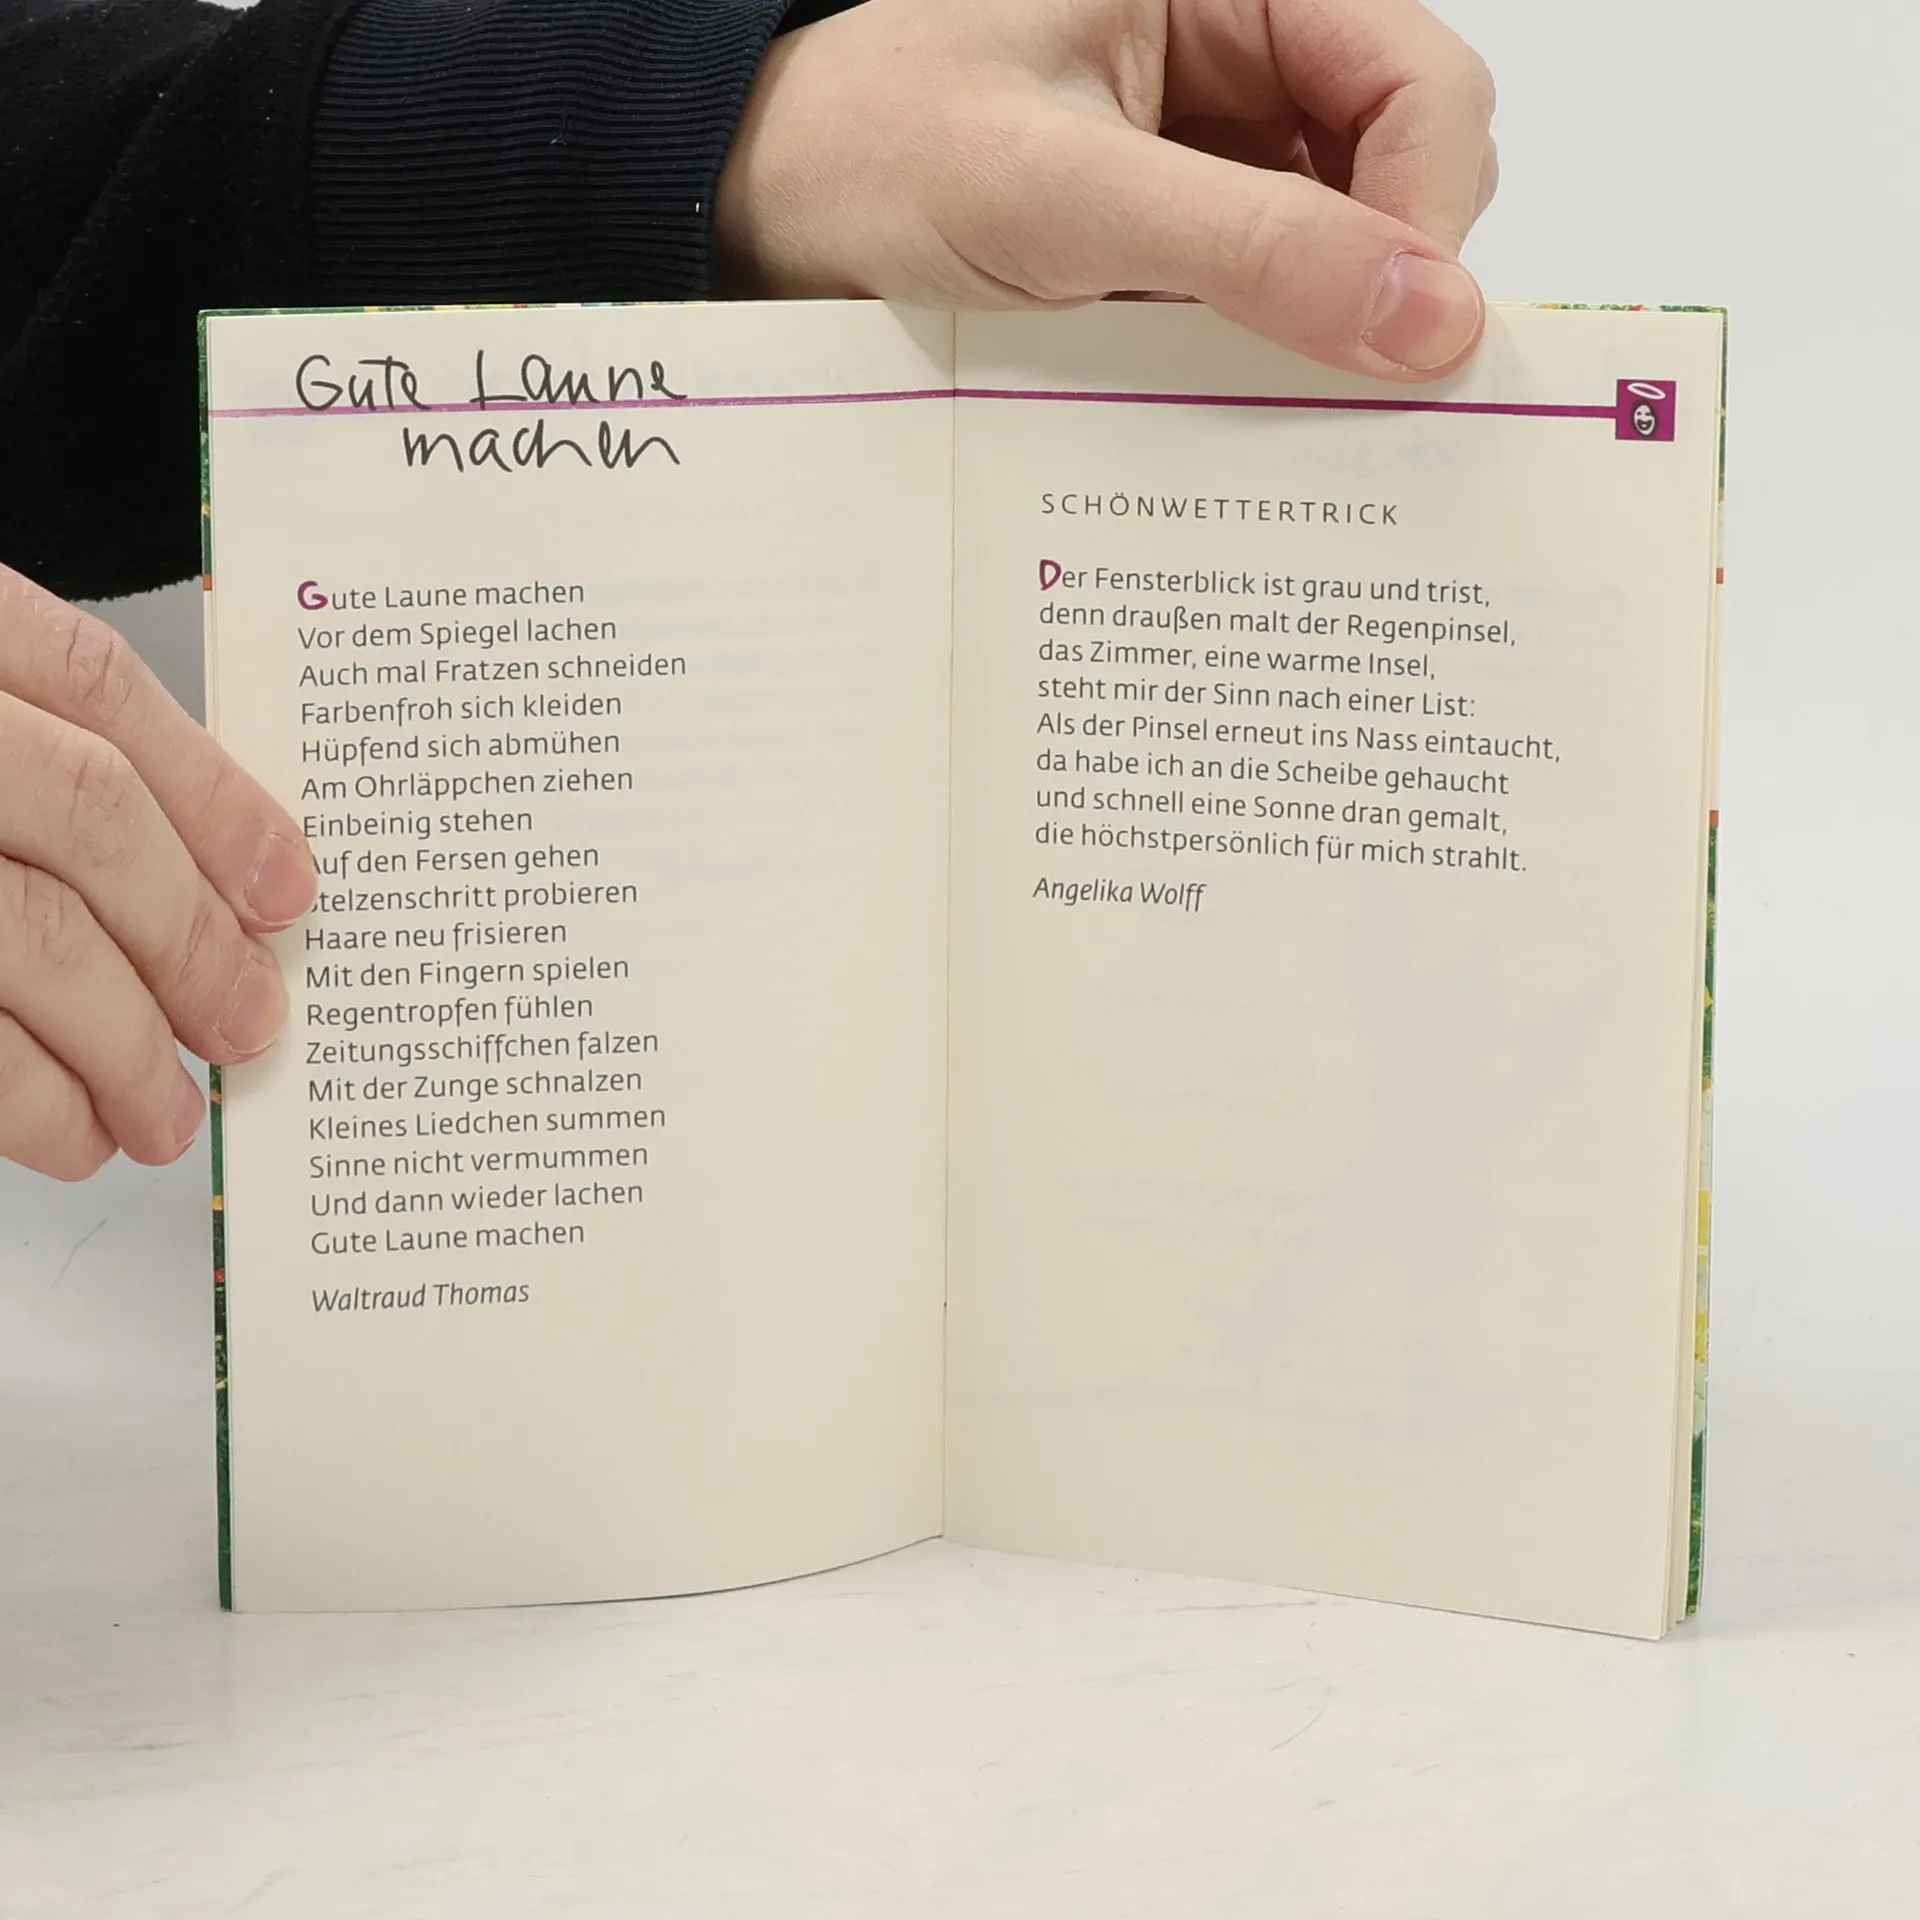 Gute Laune
machen
Gute Laune machen
Vor dem Spiegel lachen
Auch mal Fratzen schneiden
Farbenfroh sich kleiden
Hüpfend sich abmühen
Am Ohrläppchen ziehen
Einbeinig stehen
Auf den Fersen gehen
Stelzenschritt probieren
Haare neu frisieren
Mit den Fingern spielen
Regentropfen fühlen
Zeitungsschiffchen falzen
Mit der Zunge schnalzen
Kleines Liedchen summen
Sinne nicht vermummen
Und dann wieder lachen
Gute Laune machen
Waltraud Thomas
SCHÖNWETTERTRICK
Der Fensterblick ist grau und trist,
denn draußen malt der Regenpinsel,
das Zimmer, eine warme Insel,
steht mir der Sinn nach einer List:
Als der Pinsel erneut ins Nass eintaucht,
da habe ich an die Scheibe gehaucht
und schnell eine Sonne dran gemalt,
die höchstpersönlich für mich strahlt.
Angelika Wolff